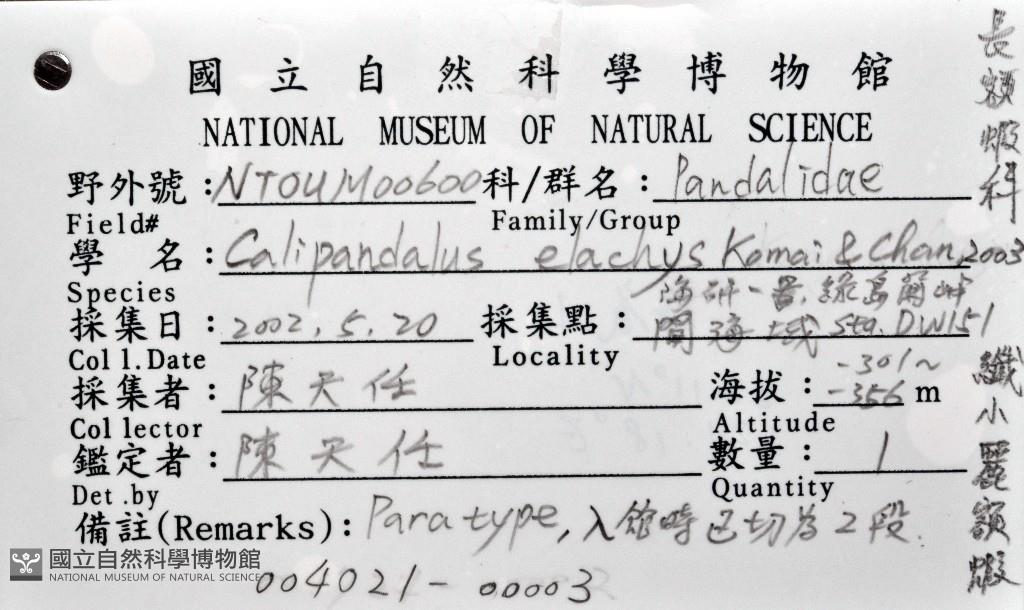 國立自然科學博物館
NATIONAL MUSEUM OF NATURAL SCIENCE
野外號：NTOUM00600 科/群名：Pandalidae
Field# Family/Group
學名：Calipandalus elachys Komai & Chan, 2003
Species
海研一号，綠島蘭嶼
採集日：2002.5.20 採集點：間海域 Sta. DW151
Coll.Date Locality
採集者：陳天任 海拔：-301~-356 m
Collector Altitude
鑑定者：陳天任 數量：1
Det.by Quantity
備註(Remarks)：Paratype, 入館時已切為2段.
國立自然科學博物館
NATIONAL MUSEUM OF NATURAL SCIENCE
004021-00003
長額蝦科
纖小麗額蝦